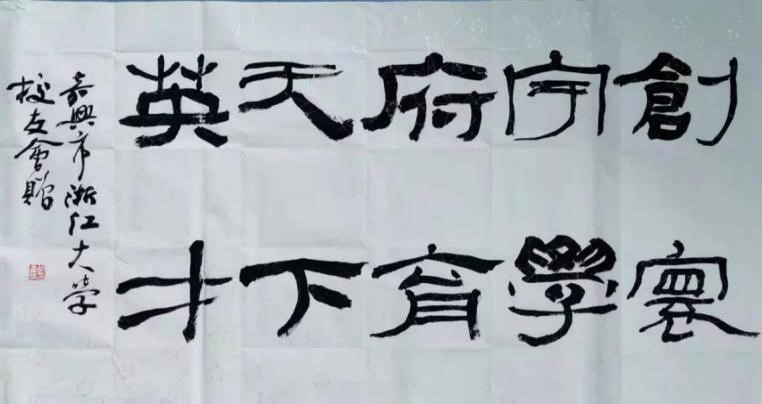 創寰
宇學
府育
天下
英才
嘉興市浙江大學
校友會贈